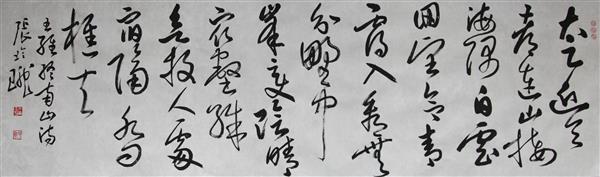 太乙近天
都連山接
海隅白雲
回望合青
靄入看無
分野中
峰變陰晴
眾壑殊
欲投人處
宿隔水問
樵夫
王維終南山詩
張